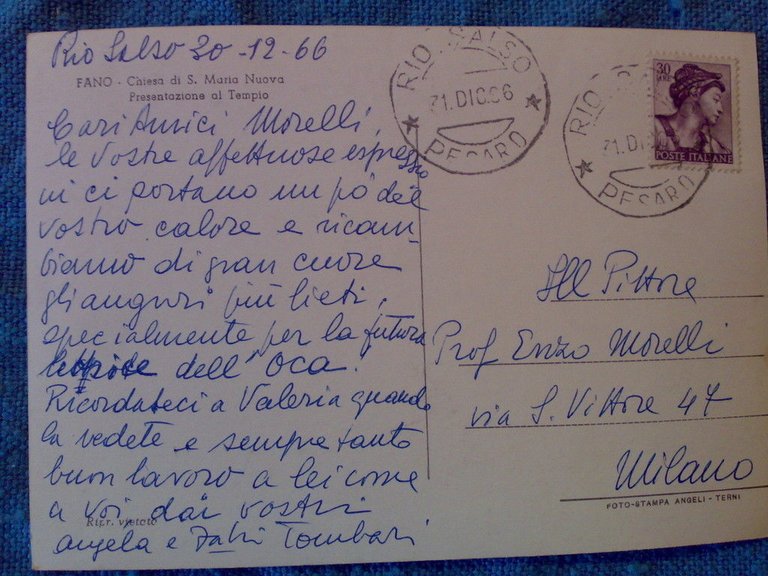 Rio Salso 30-12-66
FANO - Chiesa di S. Maria Nuova
Presentazione al Tempio
Cari Amici Morelli,
le vostre affettuose espressio
ni ci portano un pò del
vostro calore e ricam-
biamo di gran cuore
gli auguri più lieti,
specialmente per la futura
dell'Oca.
Ricordateci a Valeria quando
la vedete e sempre tanto
buon lavoro a lei come
a voi dai vostri
Angela e Fabio Tombari
Ripr. vietata
RIO SALSO
31.DIC.66
PESARO
RIO
31.DI
PESARO
30
LIRE
POSTE ITALIANE
Ill Pittore
Prof Enzo Morelli
via S. Vittore 47
Milano
FOTO-STAMPA ANGELI - TERNI